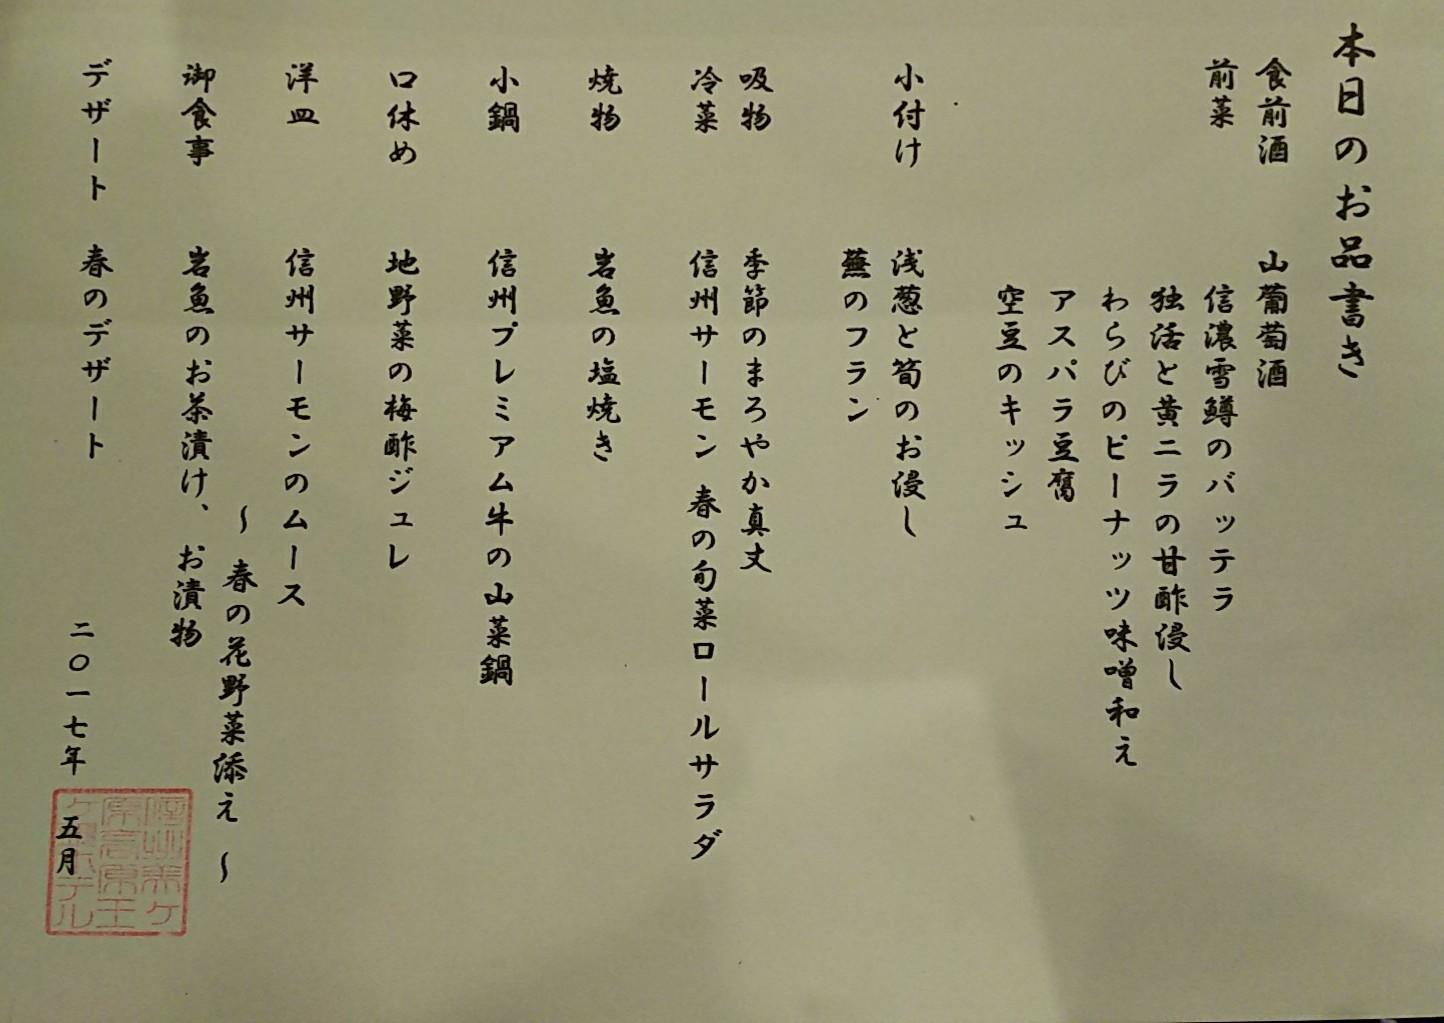 本日のお品書き
食前酒 山葡萄酒
前菜 信濃雪鱒のバッテラ
独活と黄ニラの甘酢浸し
わらびのピーナッツ味噌和え
アスパラ豆腐
空豆のキッシュ
小付け 浅葱と筍のお浸し
蕪のフラン
吸物 季節のまろやか真丈
冷菜 信州サーモン 春の旬菜ロールサラダ
焼物 岩魚の塩焼き
小鍋 信州プレミアム牛の山菜鍋
口休め 地野菜の梅酢ジュレ
洋皿 信州サーモンのムース
~ 春の花野菜添え ~
御食事 岩魚のお茶漬け、お漬物
デザート 春のデザート
二〇一七年 五月